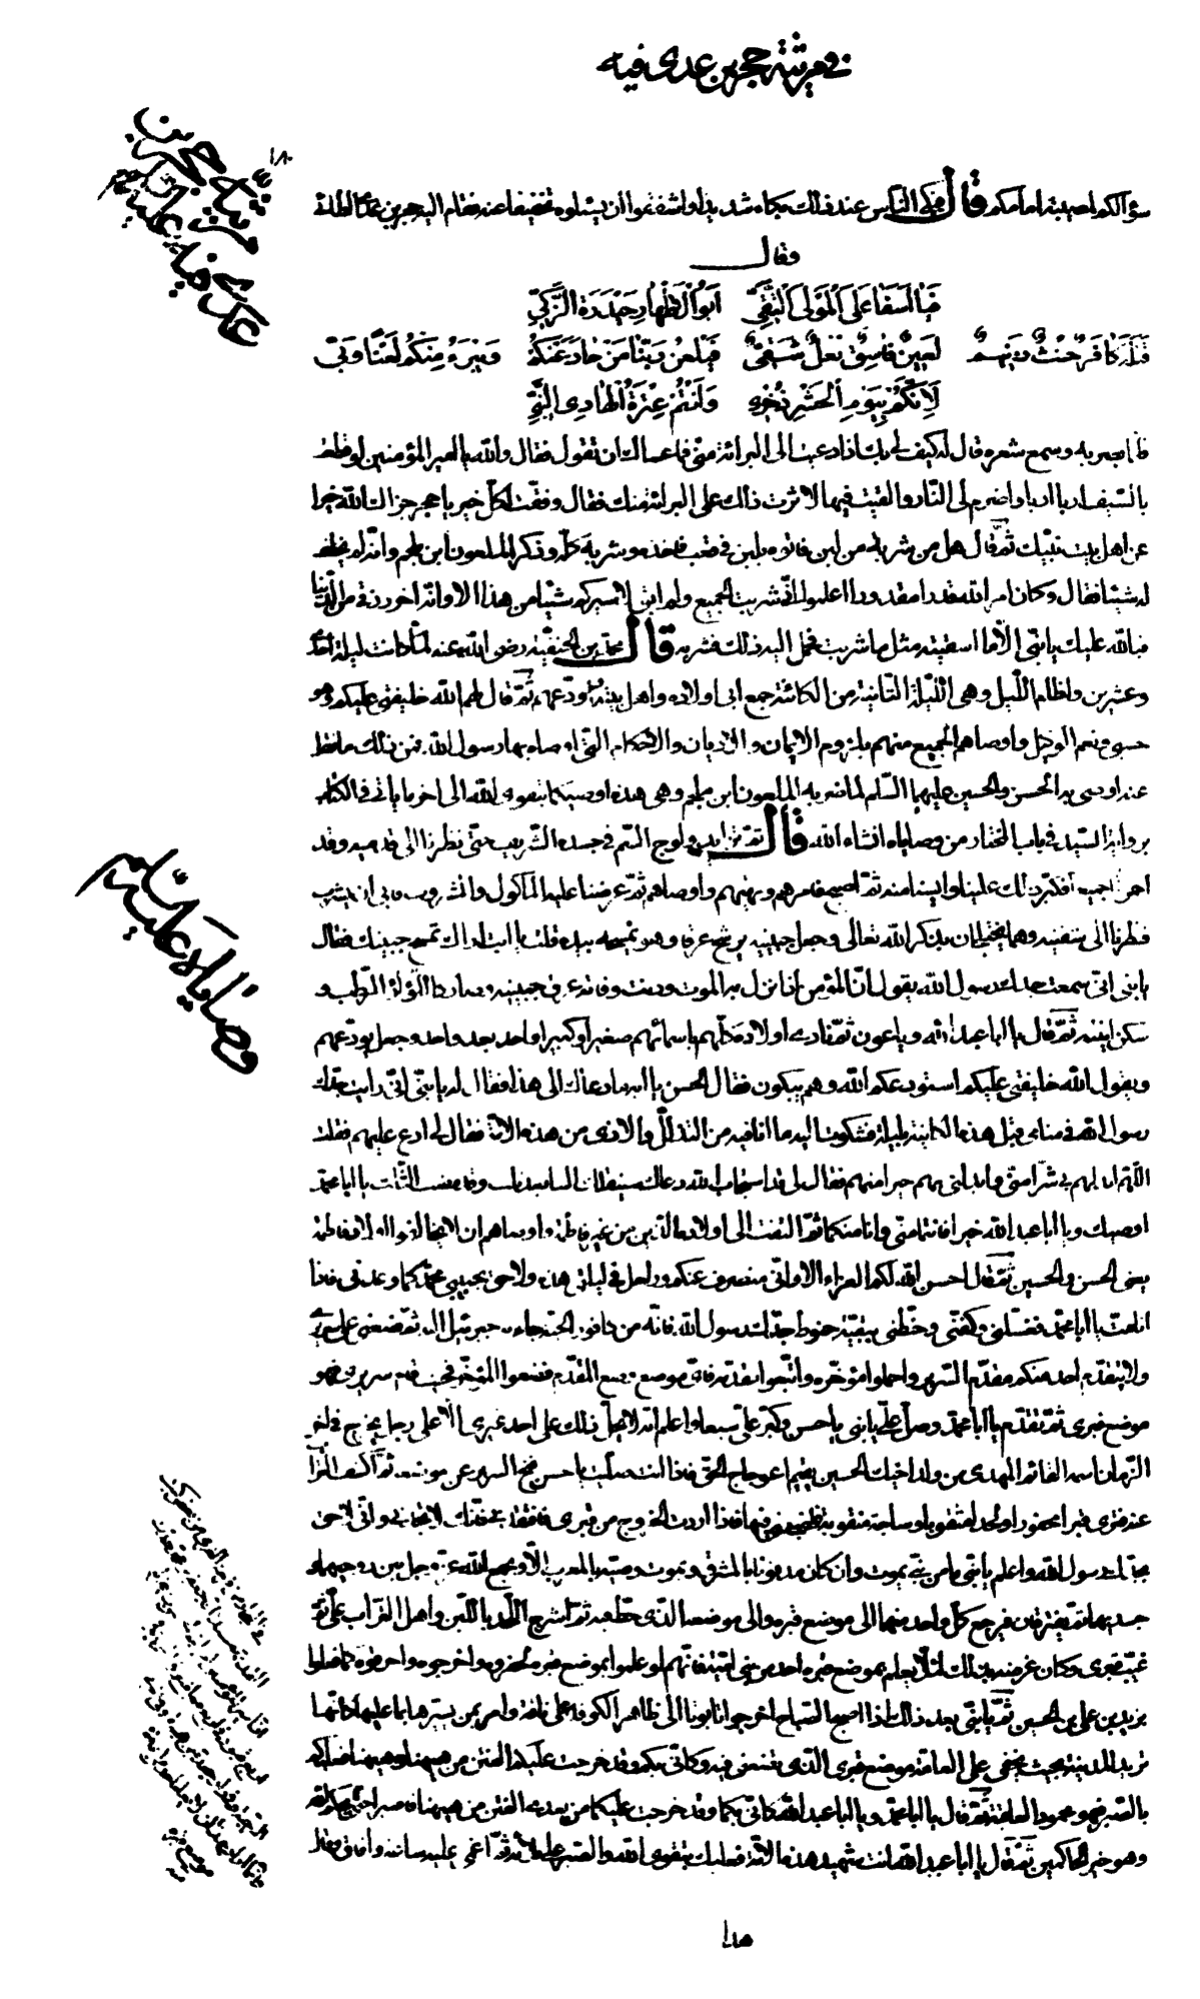 في مرثية حجر بن عدي فيه
١٨٠
مرثية حجر بن عدي فيه عليه السلام
سؤالكم لمصيبة امامكم قال فبكى الناس عند ذلك بكاء شديدا واشفقوا ان يسئلوه تخفيفا عنه فقام اليه حجر بن عدي الطائي
وقال
فَيَا اَسَفَا عَلَى الْمَوْلَى التَّقِيِّ اَبُو الْاَطْهَارِ حَيْدَرَةَ الزَّكِيِّ
قَتَلَهُ كَافِرٌ حِنْثٌ زَنِيمٌ لَعِينٌ فَاسِقٌ نَغْلٌ شَقِيٌّ فَيَلْعَنُ رَبُّنَا مَنْ حَادَ عَنْكُمْ وَيَبْرَءُ مِنْكُمْ لَعْنًا وَبِيّ
لِاَنَّكُمْ بِيَوْمِ الْحَشْرِ ذُخْرِي وَاَنْتُمْ عِتْرَةُ الْهَادِي النَّبِيِّ
فلما بصر به وسمع شعره قال له كيف لي بك اذا دعيت الى البرائة مني فما عساك ان تقول فقال والله يا امير المؤمنين لو قطعت
بالسيف اربا اربا واضرم لي النار والقيت فيها لاثرت ذلك على البرائة منك فقال وفقت لكل خير يا حجر جزاك الله خيرا
عن اهل بيت نبيك ثم قال هل من شربة من لبن فاتوه بلبن في قعب فاخذه وشربه كله وذكر الملعون ابن ملجم وانه لم يخلف
له شيئا فقال وكان امر الله قدرا مقدورا اعلموا اني شربت الجميع ولم ابق لاسيركم شيئا من هذا الا وانه اخر رزقي من الدنيا
فبالله عليك يا بني الا ما اسقيته مثل ما شربت فحمل اليه ذلك فشربه قال محمد بن الحنفية رضي الله عنه لما كانت ليلة احدى
وعشرين واظلم الليل وهي الليلة الثانية من الكائنة جمع ابي اولاده واهل بيته وودعهم ثم قال لهم الله خليفتي عليكم وهو
حسبي ونعم الوكيل واوصاهم الجميع منهم بلزوم الايمان والاديان والاحكام التي اوصاه بها رسول الله فمن ذلك ما نقل
عنه اوصى به الحسن والحسين عليهما السلم لما ضربه الملعون ابن ملجم وهي هذه اوصيكما بتقوى الله الى اخر ما ياتي في الكتاب
برواية السيد في باب المختار من وصاياه انشاء الله قال ثم تزايد ولوج السم في جسده الشريف حتى نظرنا الى قدميه وقد
احمرتا جميعا فكبر ذلك علينا وايسنا منه ثم اصبح ثقيلا فامرهم ونهيهم واوصاهم ثم عرضنا عليه الماكول والمشروب فابى ان يشرب
فنظرنا الى شفتيه وهما يختلجان بذكر الله تعالى وجعل جبينه يرشح عرقا وهو يمسحه بيده قلت يا ابت اراك تمسح جبينك فقال
يا بني اني سمعت جدك رسول الله يقول ان المؤمن اذا نزل به الموت ودنت وفاته عرق جبينه وصار كاللؤلؤ الرطب و
سكن انينه ثم قال يا ابا عبد الله ويا عون ثم نادى اولاده كلهم باسمائهم صغيرا وكبيرا واحد بعد واحد وجعل يودعهم
ويقول الله خليفتي عليكم استودعكم الله وهم يبكون فقال الحسن يا ابه ما دعاك الى هذا فقال له يا بني اني رايت جدك
رسول الله في منامي قبل هذه الكائنة بليلة فشكوت اليه ما انا فيه من التذلل والاذى من هذه الامة فقال لي ادع عليهم فقلت
اللهم ابدلهم بي شرا مني وابدلني بهم خيرا منهم فقال لي قد استجاب الله دعاك سينقلك الينا بعد ثلث وقد مضت الثلث يا ابا محمد
اوصيك ويا ابا عبد الله خيرا فانتما مني وانا منكما ثم التفت الى اولاده الذين من غير فاطمة واوصاهم ان لا يخالفوا اولاد فاطمة
يعني الحسن والحسين ثم قال احسن الله لكم العزاء الا واني منصرف عنكم وراحل في ليلتي هذه ولاحق بحبيبي محمد كما وعدني فاذا
انا مت يا ابا محمد فغسلني وكفني وحنطني ببقية حنوط جدك رسول الله فانه من كافور الجنة جاء به جبرئيل اليه ثم ضعني على سريري
ولا يتقدم احد منكم مقدم السرير واحملوا مؤخره واتبعوا مقدمه فاي موضع وضع المقدم فضعوا المؤخر فحيث قام سريري فهو
موضع قبري ثم تقدم يا ابا محمد وصل علي يا بني يا حسن وكبر علي سبعا واعلم انه لا يحل ذلك على احد غيري الا على رجل يخرج في اخر
الزمان اسمه القائم المهدي من ولد اخيك الحسين يقيم اعوجاج الحق فاذا انت صليت يا حسن فنح السرير عن موضعه ثم اكشف التراب
عنه فترى قبرا محفورا ولحدا مثقوبا وساجة منقوبة فاضجعني فيها فاذا اردت الخروج من قبري فافتقدني فانك لا تجدني واني لاحق
بجدك رسول الله واعلم يا بني ما من نبي يموت وان كان مدفونا بالمشرق ويموت وصيه بالمغرب الا ويجمع الله عز وجل بين روحيهما و
جسديهما ثم يفترقان فيرجع كل واحد منهما الى موضع قبره والى موضعه الذي حط فيه ثم اشرج اللحد باللبن واهل التراب علي ثم
غيب قبري وكان غرضه بذلك لئلا يعلم بموضع قبره احد من بني امية فانهم لو علموا بموضع قبره لحفروه واخرجوه واحرقوه كما فعلوا
بزيد بن علي بن الحسين ثم يا بني بعد ذلك اذا اصبح الصباح اخرجوا تابوتا الى ظاهر الكوفة على ناقة وامر بمن يسيرها بما عليها كانها
تريد المدينة بحيث يخفى على العامة موضع قبري الذي تضعني فيه وكاني بكم وقد خرجت عليكم الفتن من هيهنا وهيهنا فعليكم
بالصبر فهو محمود العاقبة ثم قال يا ابا محمد ويا ابا عبد الله كاني بكما وقد خرجت عليكما من بعدي الفتن من هيهنا فاصبرا حتى يحكم الله
وهو خير الحاكمين ثم قال يا ابا عبد الله انت شهيد هذه الامة فعليك بتقوى الله والصبر على بلائه ثم اغمي عليه ساعة وافاق وقال
وصاياه عليه السلام